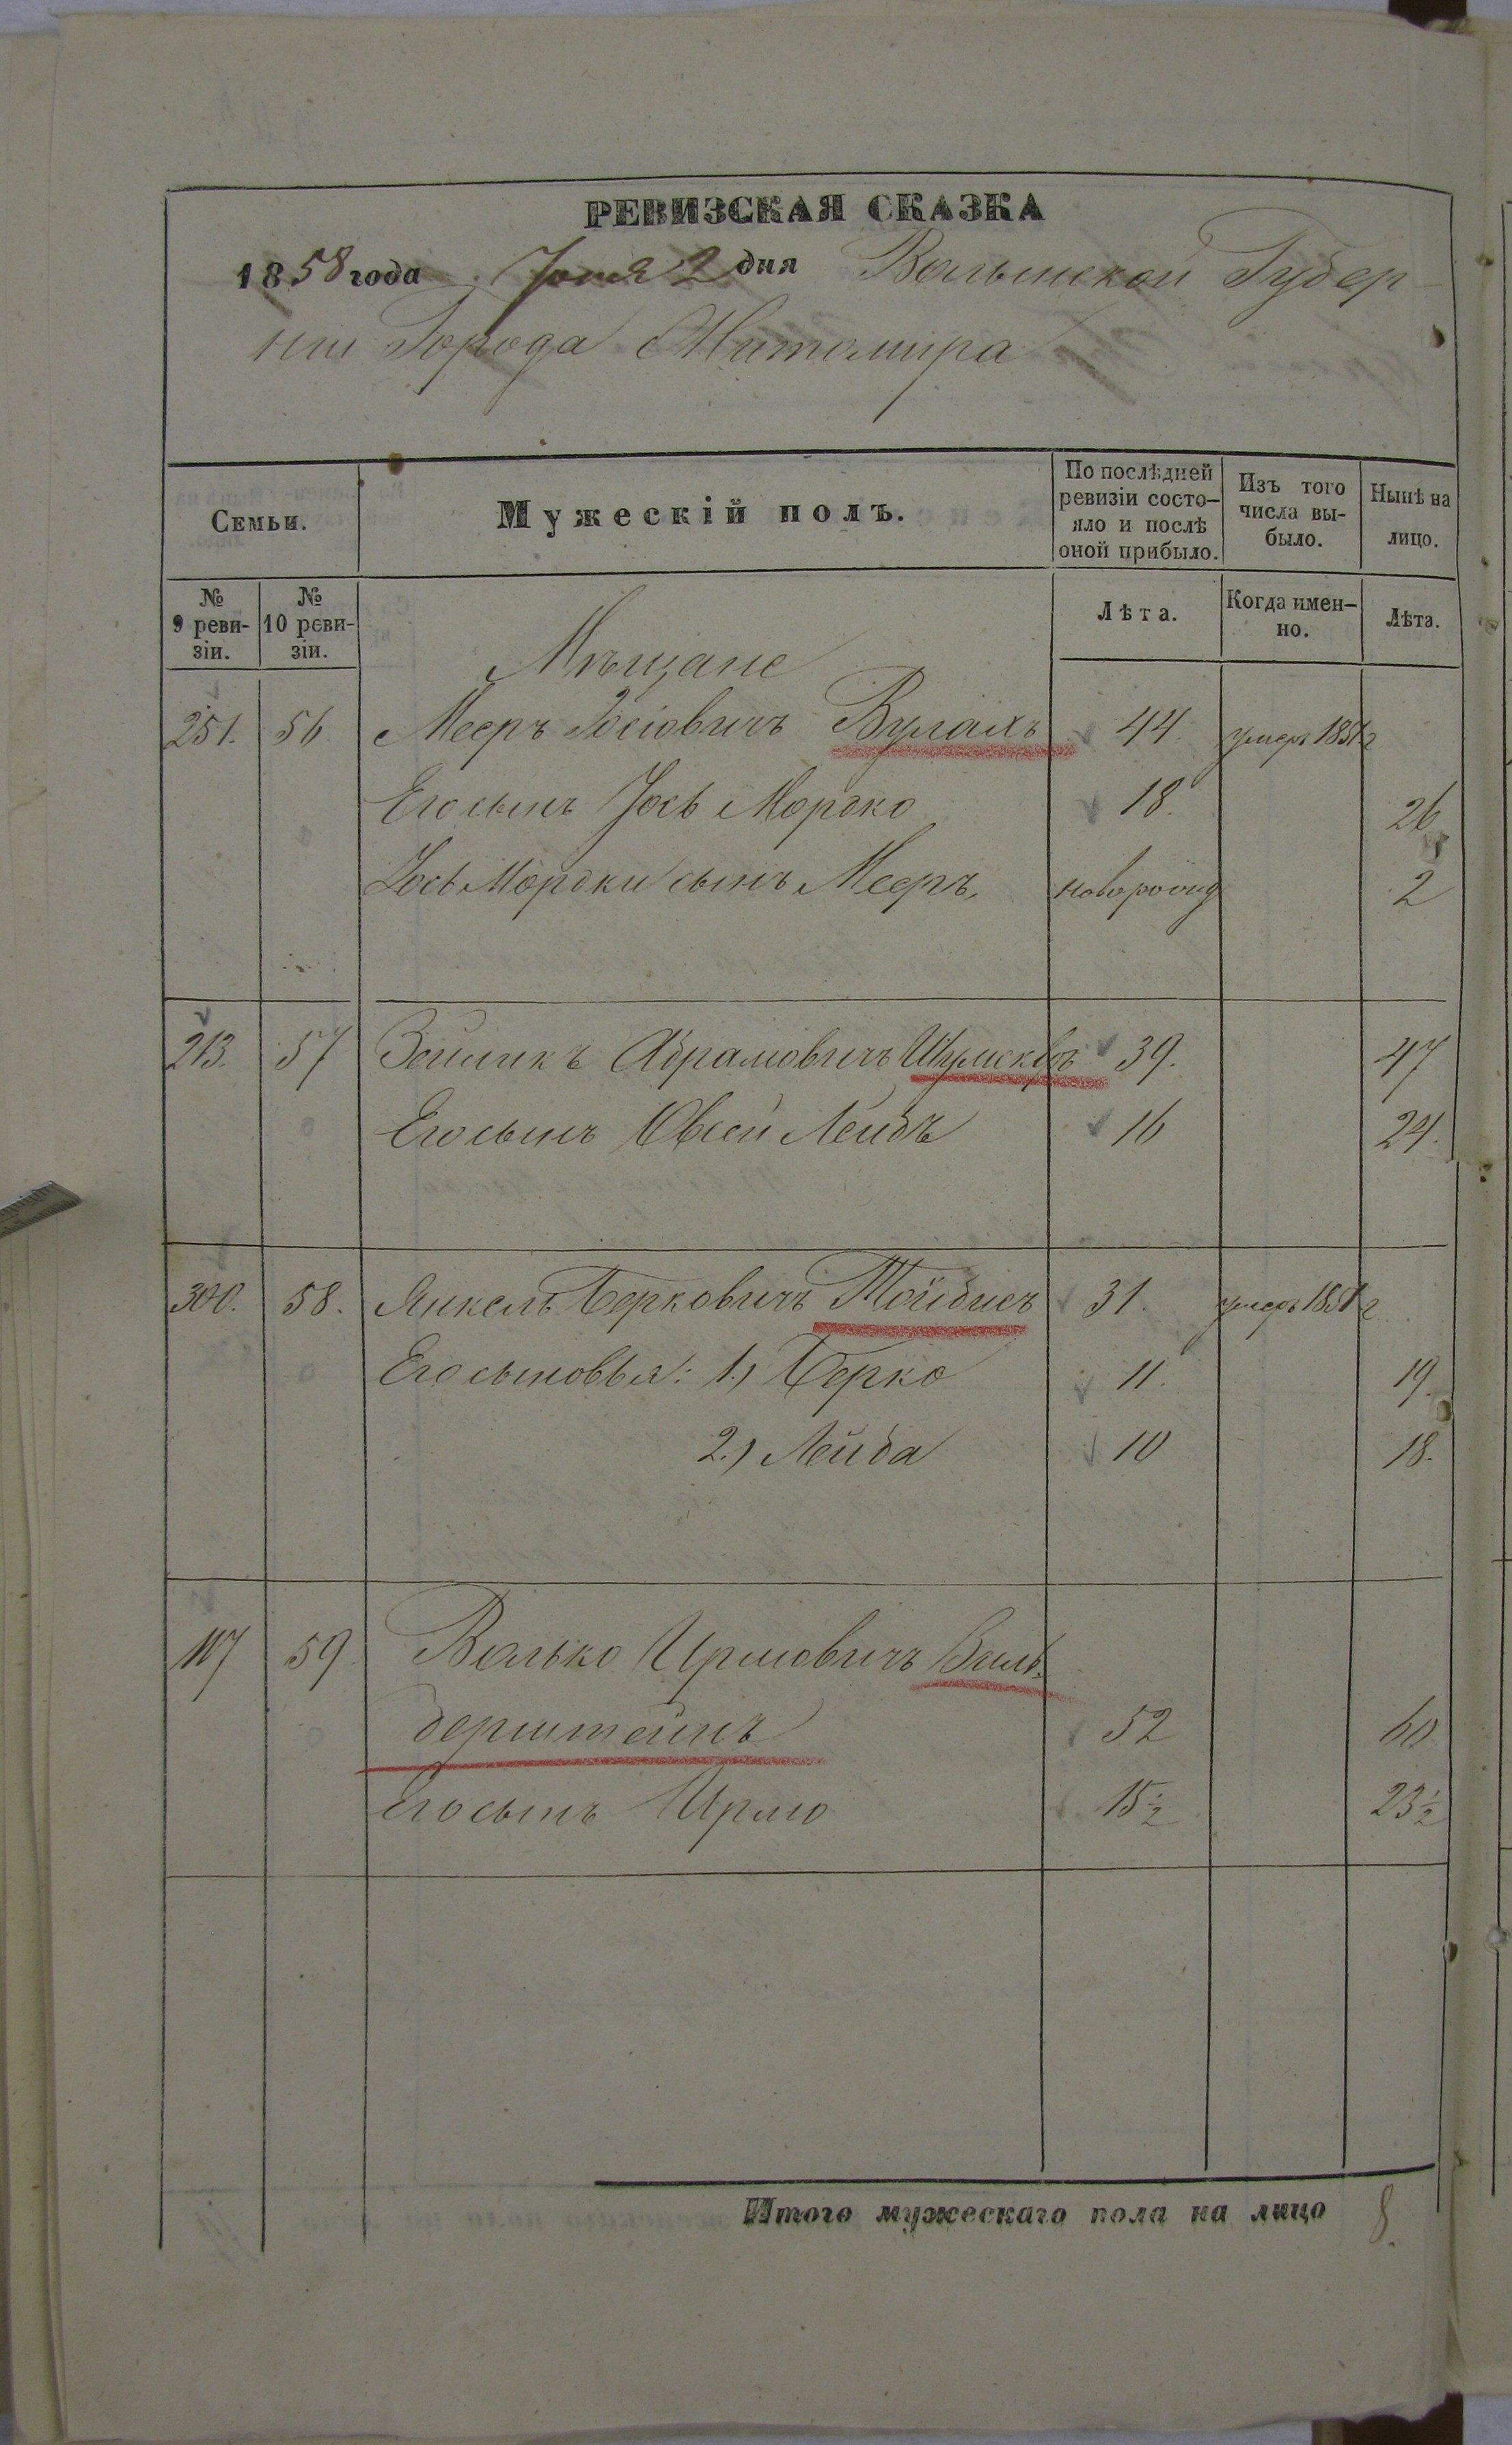 РЕВИЗСКАЯ СКАЗКА
1858 года Іюня 2 дня Волынской Губер
ніи Города Житомира
Семьи.
Мужескій полъ.
По послѣдней ревизіи состо-
яло и послѣ оной прибыло.
Изъ того числа вы-
было.
Нынѣ на лицо.
№ 9 реви-
зіи.
№ 10 реви-
зіи.
Лѣта.
Когда имен-
но.
Лѣта.
Мѣщане
251. 56 Мееръ Іосіовичъ Вулахъ 44. умеръ 1851 г
Его сынъ Іось Мордко 18. 26
Іось Мордки сынъ Мееръ новорожд 2
213. 57 Зейликъ Абрамовичъ 39. 47
Его сынъ Овсей Лейбъ 16 24.
300. 58. Янкель Берковичъ Тойбисъ 31. умеръ 1851 г
Его сыновья: 1.) Берко 11. 19.
2.) Лейба 10 18.
117 59 Волько Ирмовичъ Зиль-
берштейнъ 52 60
Его сынъ Ирмо 15½ 23½
Итого мужескаго пола на лицо 8.